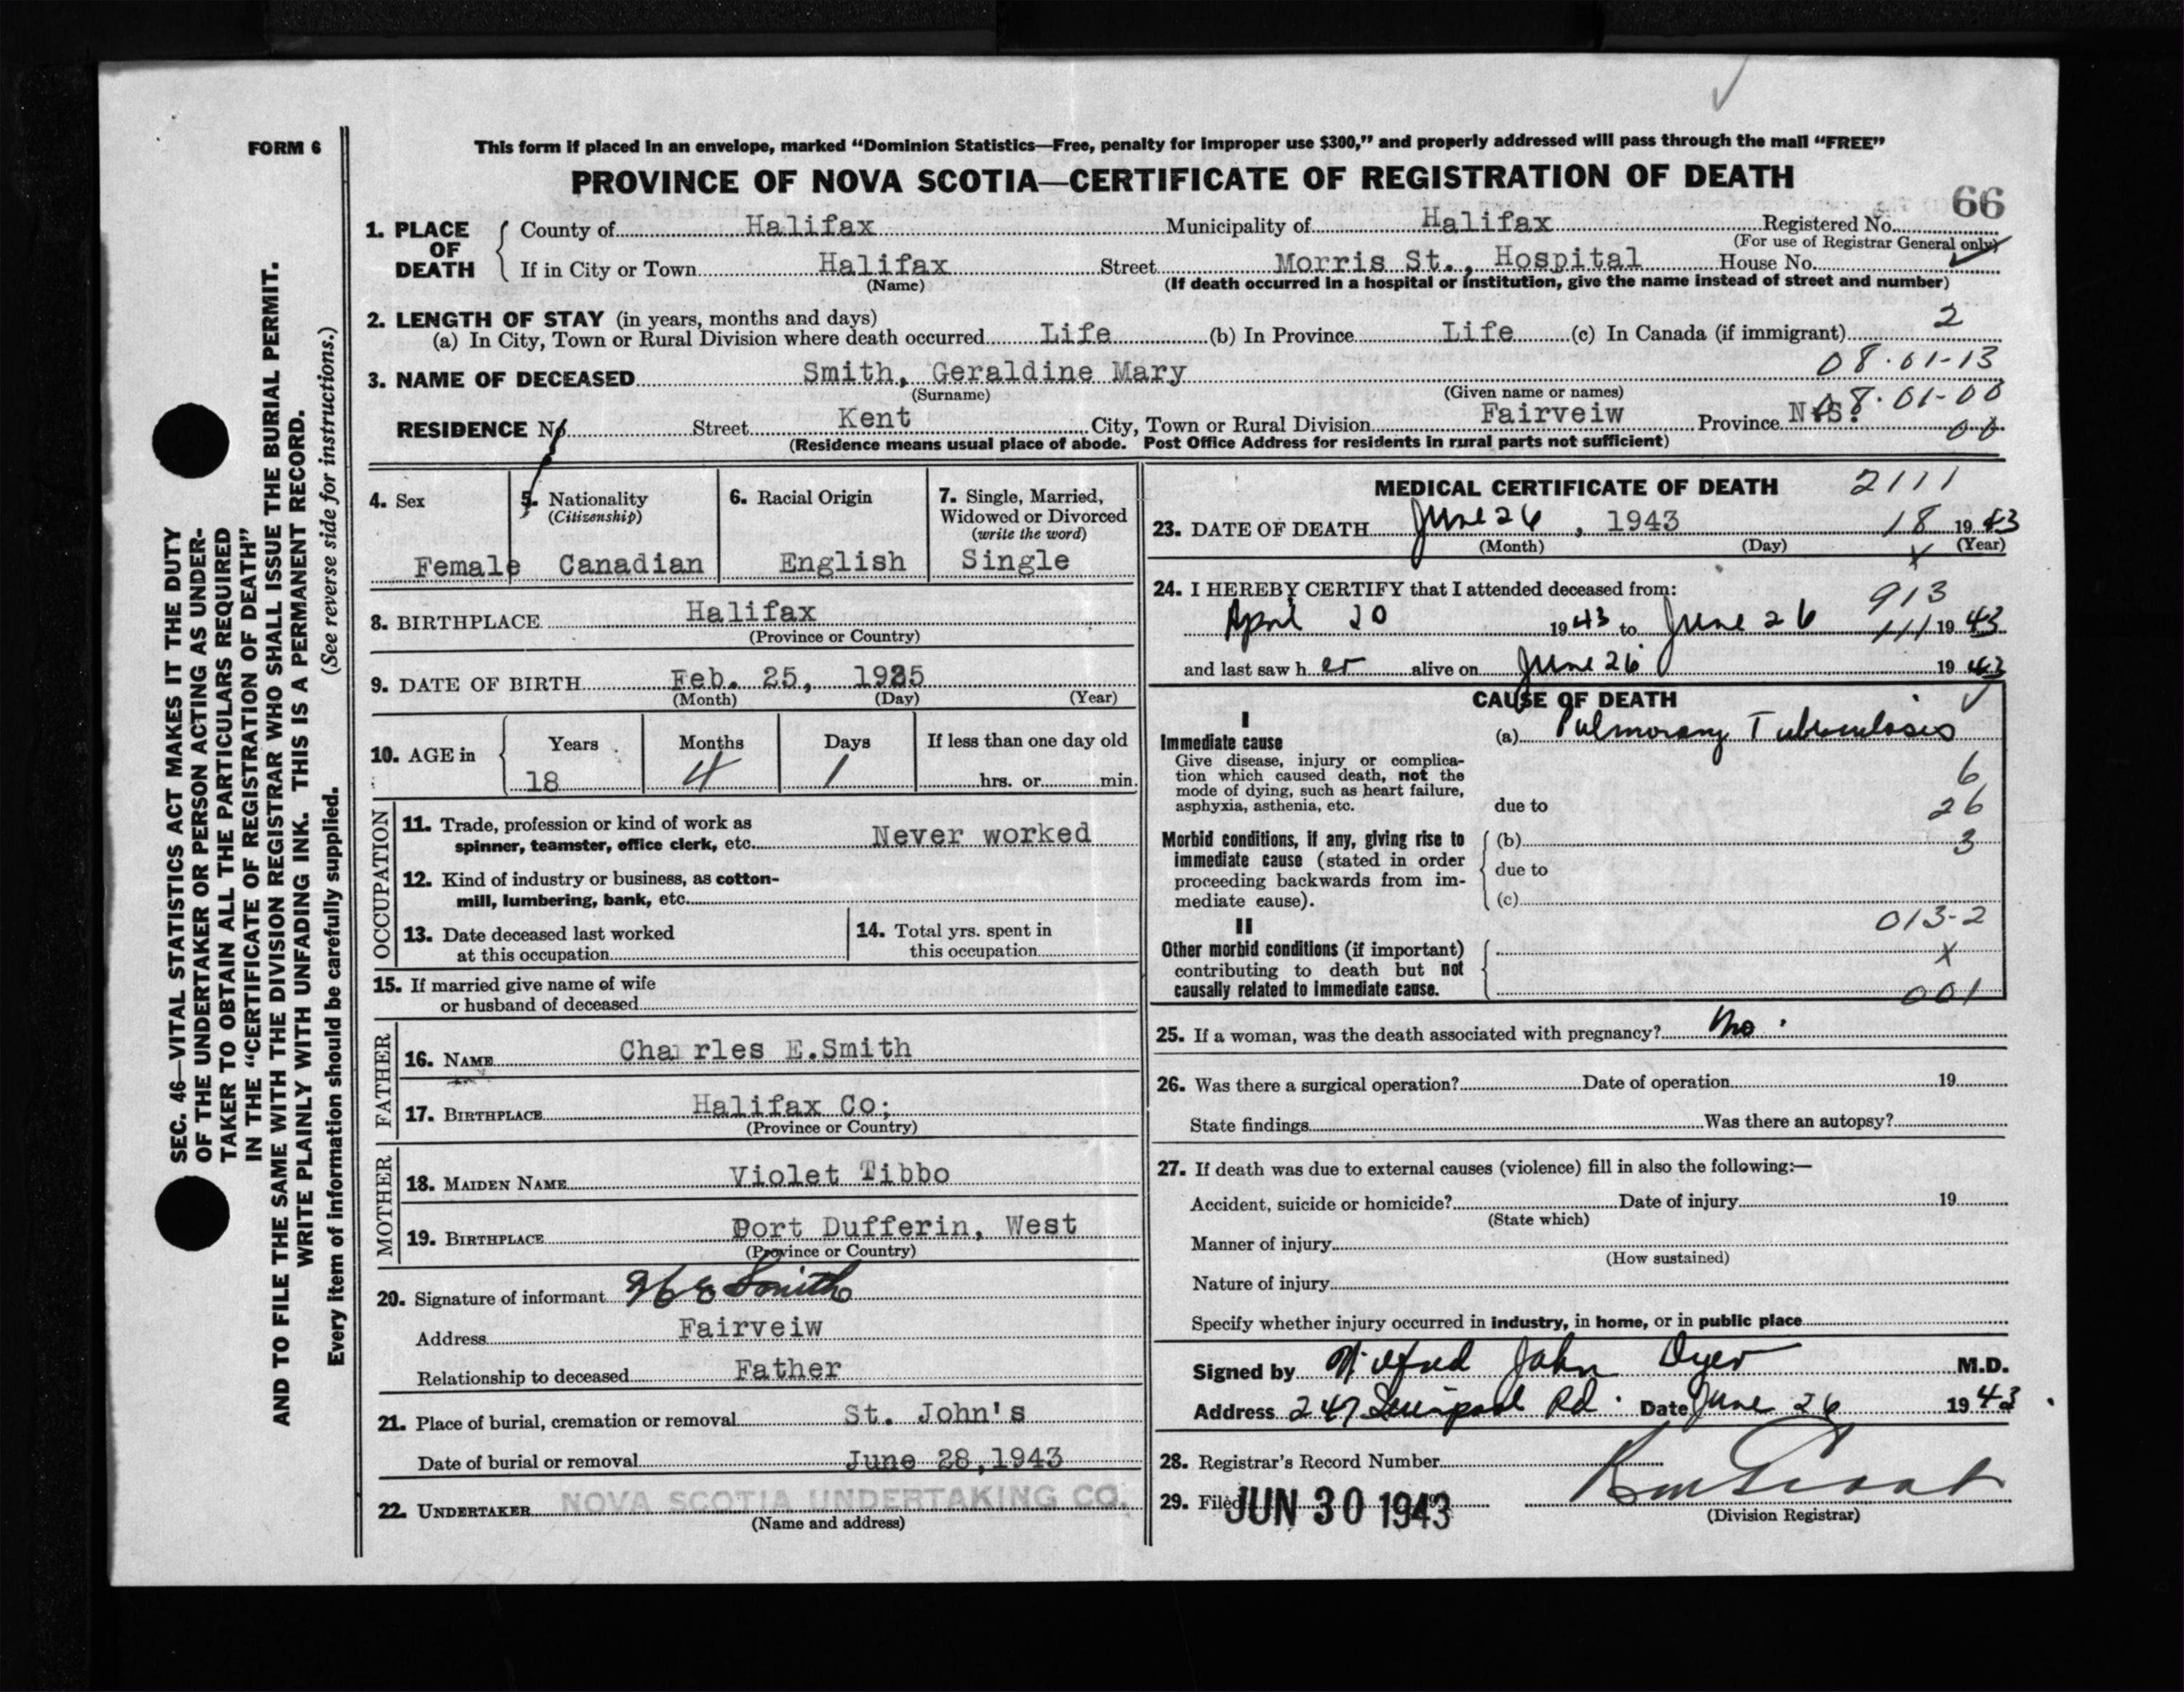 FORM 6
This form if placed in an envelope, marked “Dominion Statistics—Free, penalty for improper use $300,” and properly addressed will pass through the mail “FREE”
PROVINCE OF NOVA SCOTIA—CERTIFICATE OF REGISTRATION OF DEATH
66
1. PLACE OF DEATH
County of Halifax Municipality of Halifax Registered No.
(For use of Registrar General only)
If in City or Town Halifax Street Morris St., Hospital House No.
(Name) (If death occurred in a hospital or institution, give the name instead of street and number)
2. LENGTH OF STAY (in years, months and days)
(a) In City, Town or Rural Division where death occurred Life (b) In Province Life (c) In Canada (if immigrant) 2
08·01-13
3. NAME OF DECEASED Smith, Geraldine Mary
(Surname) (Given name or names)
08·01-00
RESIDENCE No. Street Kent City, Town or Rural Division Fairveiw Province N.S.
00
(Residence means usual place of abode. Post Office Address for residents in rural parts not sufficient)
4. Sex
Female
5. Nationality
(Citizenship)
Canadian
6. Racial Origin
English
7. Single, Married,
Widowed or Divorced
(write the word)
Single
8. BIRTHPLACE Halifax
(Province or Country)
9. DATE OF BIRTH Feb. 25, 1925
(Month) (Day) (Year)
10. AGE in
Years Months Days If less than one day old
18 4 1 hrs. or min.
OCCUPATION
11. Trade, profession or kind of work as
spinner, teamster, office clerk, etc. Never worked
12. Kind of industry or business, as cotton-
mill, lumbering, bank, etc.
13. Date deceased last worked
at this occupation
14. Total yrs. spent in
this occupation
15. If married give name of wife
or husband of deceased
FATHER
16. NAME Cha rles E.Smith
17. BIRTHPLACE Halifax Co;
(Province or Country)
MOTHER
18. MAIDEN NAME Violet Tibbo
19. BIRTHPLACE Port Dufferin, West
(Province or Country)
20. Signature of informant Smith
Address Fairveiw
Relationship to deceased Father
21. Place of burial, cremation or removal St. John's
Date of burial or removal June 28,1943
22. UNDERTAKER NOVA SCOTIA UNDERTAKING CO.
(Name and address)
MEDICAL CERTIFICATE OF DEATH 2111
23. DATE OF DEATH June 26 , 1943 18 19 43
(Month) (Day) (Year)
x
24. I HEREBY CERTIFY that I attended deceased from:
913
April 20 1943 to June 26 111 19 43
and last saw h er alive on June 26 19 43
CAUSE OF DEATH
I
Immediate cause
Give disease, injury or complica-
tion which caused death, not the
mode of dying, such as heart failure,
asphyxia, asthenia, etc.
(a) Pulmonary Tuberculosis
6
due to 26
Morbid conditions, if any, giving rise to
immediate cause (stated in order
proceeding backwards from im-
mediate cause).
(b) 3
due to
(c)
013-2
II
Other morbid conditions (if important)
contributing to death but not
causally related to immediate cause.
x
001
25. If a woman, was the death associated with pregnancy? No.
26. Was there a surgical operation? Date of operation 19
State findings Was there an autopsy?
27. If death was due to external causes (violence) fill in also the following:—
Accident, suicide or homicide? Date of injury 19
(State which)
Manner of injury
(How sustained)
Nature of injury
Specify whether injury occurred in industry, in home, or in public place
Signed by John Dyer M.D.
Address 247 Rd. Date June 26 1943
28. Registrar's Record Number
29. Filed JUN 30 1943
(Division Registrar)
SEC. 46—VITAL STATISTICS ACT MAKES IT THE DUTY
OF THE UNDERTAKER OR PERSON ACTING AS UNDER-
TAKER TO OBTAIN ALL THE PARTICULARS REQUIRED
IN THE “CERTIFICATE OF REGISTRATION OF DEATH”
AND TO FILE THE SAME WITH THE DIVISION REGISTRAR WHO SHALL ISSUE THE BURIAL PERMIT.
WRITE PLAINLY WITH UNFADING INK. THIS IS A PERMANENT RECORD.
Every item of information should be carefully supplied. (See reverse side for instructions.)